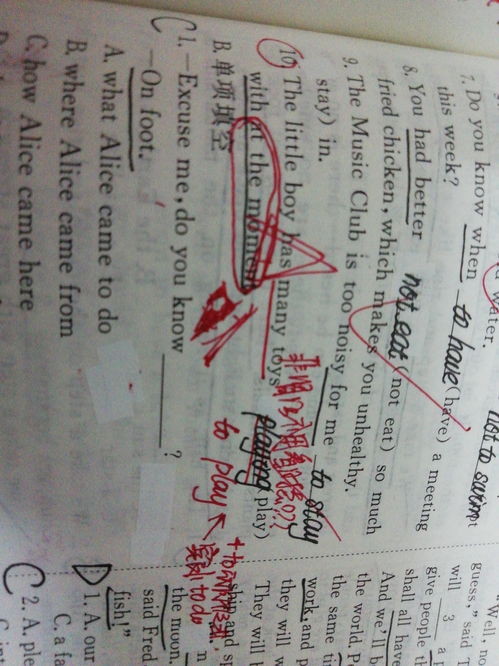 not to swim
7. Do you know when to have (have) a meeting
this week?
8. You had better not eat (not eat) so much
fried chicken, which makes you unhealthy.
9. The Music Club is too noisy for me to stay
stay) in.
10. The little boy has many toys playing play)
with at the moment
to play
B. 单项填空
C 1. —Excuse me, do you know ______?
—On foot.
A. what Alice came to do
B. where Alice came from
C. how Alice came here
guess," said T
will 3 a
give people
shall all have
And we'll
the world. P
the same ti
work, and p
they will w
They will
the moon.
said Fred
fish!"
D 1. A. our
C. a fa
C 2. A. ple